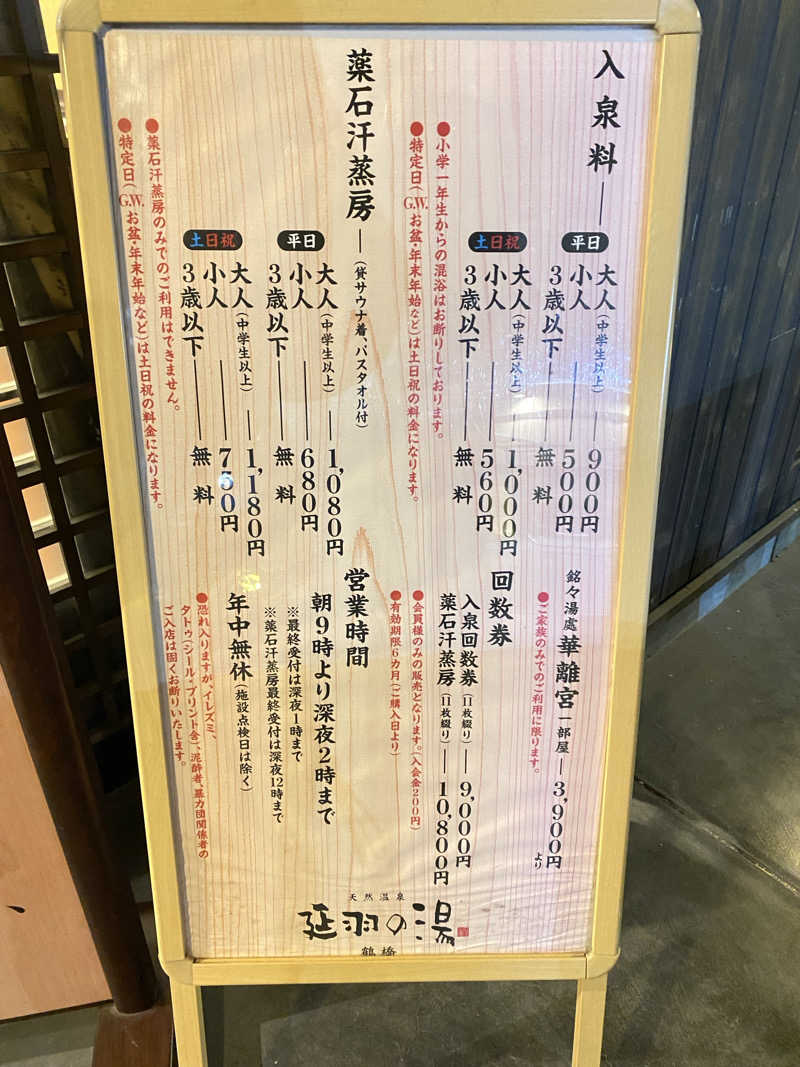 入泉料
平日
大人(中学生以上) 900円
小人 500円
3歳以下 無料
土日祝
大人(中学生以上) 1,000円
小人 560円
3歳以下 無料
●小学一年生からの混浴はお断りしております。
●特定日(G.W.お盆・年末年始など)は土日祝の料金になります。
薬石汗蒸房 (貸サウナ着、バスタオル付)
平日
大人(中学生以上) 1,080円
小人 680円
3歳以下 無料
土日祝
大人(中学生以上) 1,180円
小人 750円
3歳以下 無料
●薬石汗蒸房のみでのご利用はできません。
●特定日(G.W.お盆・年末年始など)は土日祝の料金になります。
銘々湯處 華離宮 一部屋 3,900円より
●ご家族のみでのご利用に限ります。
回数券
入泉回数券(11枚綴り) 9,000円
薬石汗蒸房(11枚綴り) 10,800円
●会員様のみの販売となります。(入会金200円)
●有効期限6カ月(ご購入日より)
営業時間
朝9時より深夜2時まで
※最終受付は深夜1時まで
※薬石汗蒸房最終受付は深夜12時まで
年中無休(施設点検日は除く)
●恐れ入りますが、イレズミ、
タトゥ(シール・プリント含)、泥酔者、暴力団関係者の
ご入店は固くお断りいたします。
天然温泉
延羽の湯
鶴橋